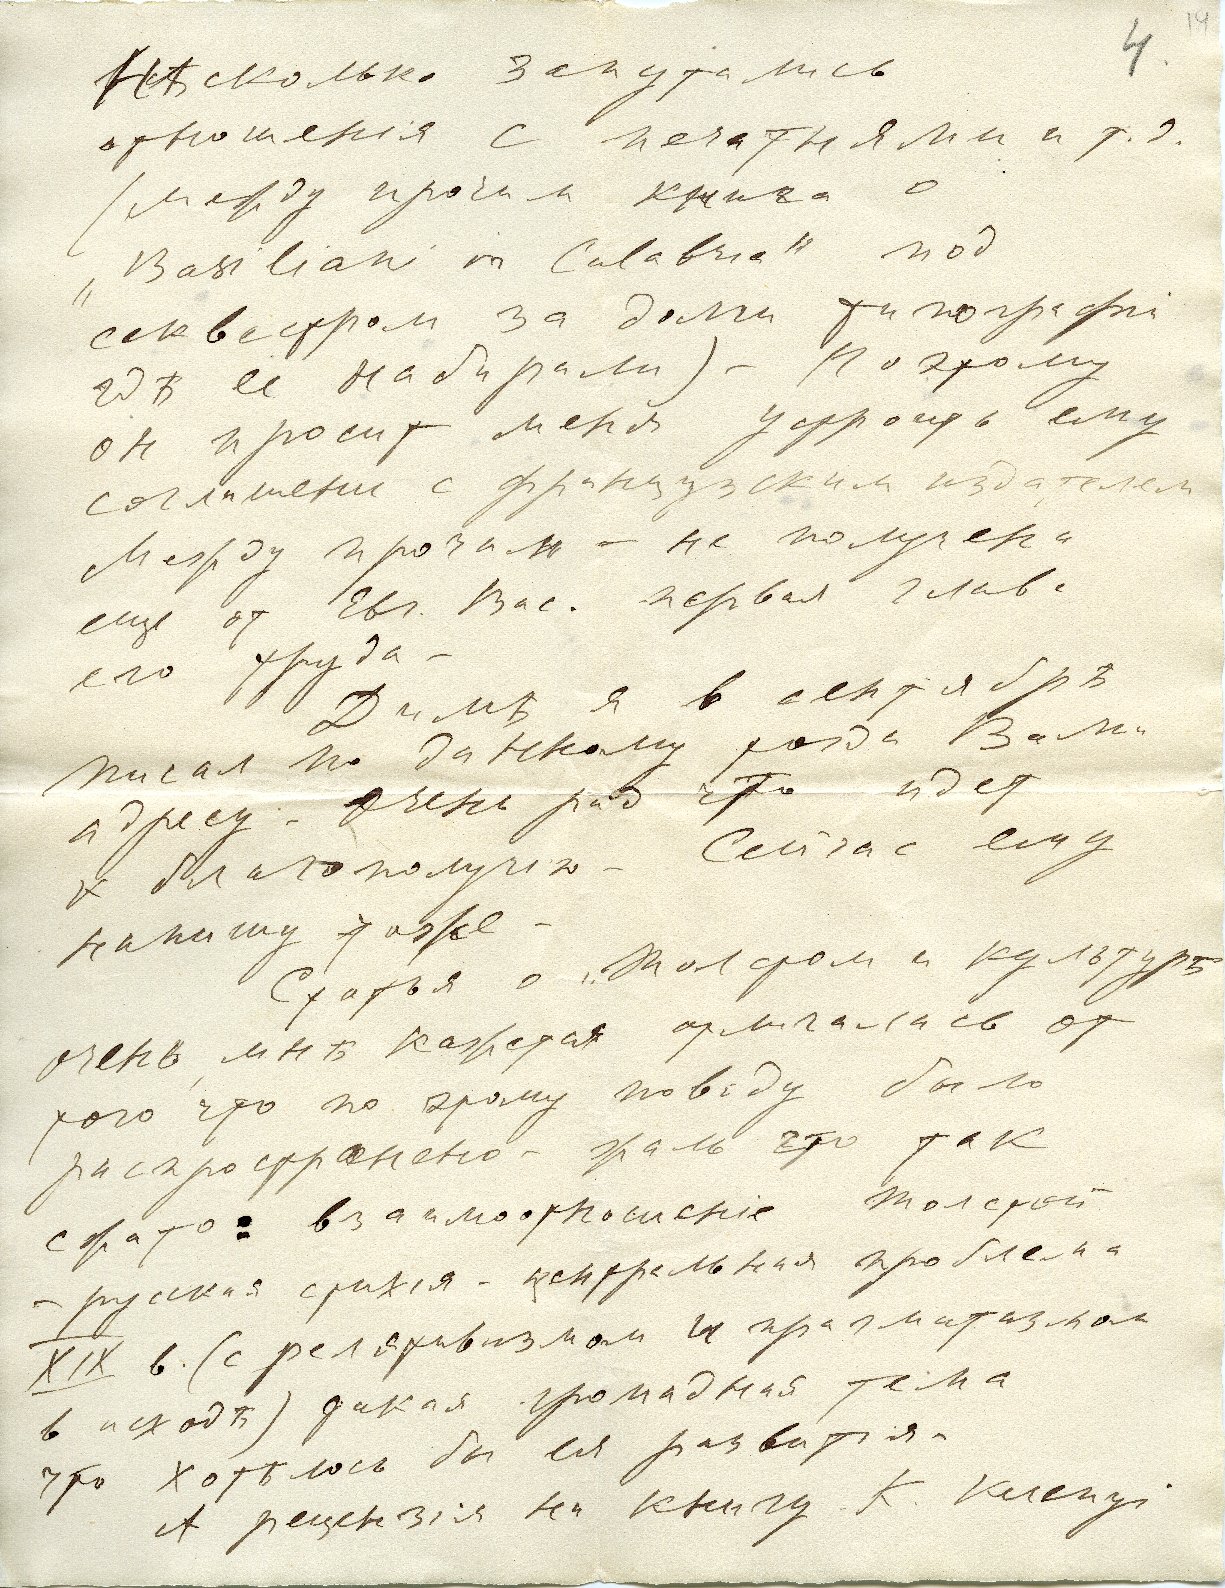 14
4.
Нѣсколько запутались
отношенія с печатнями и т.д.
(между прочим книга о
„Basiliani in Calabria" под
секвестром за долги типографіи
гдѣ ее набирали) – Поэтому
он просит меня устроить ему
соглашение с французским издателем
Между прочим – не получена
еще от Евг. Вас. первая глава
его труда –
Димѣ я в сентябрѣ
писал по данному тогда Вами
адресу – очень рад что идет
к благополучію – Сейчас ему
напишу тоже –
Статья о „Толстом и культурѣ
очень, мнѣ кажется отличалась от
того что по этому поводу было
распространено – жаль что так
сжато: взаимоотношеніе Толстой
– русская стихія – центральная проблема
XIX в. (с релятивизмом и прагматизмом
в исходѣ) такая громадная тема
что хотѣлось бы ея развитія –
А рецензія на книгу К.